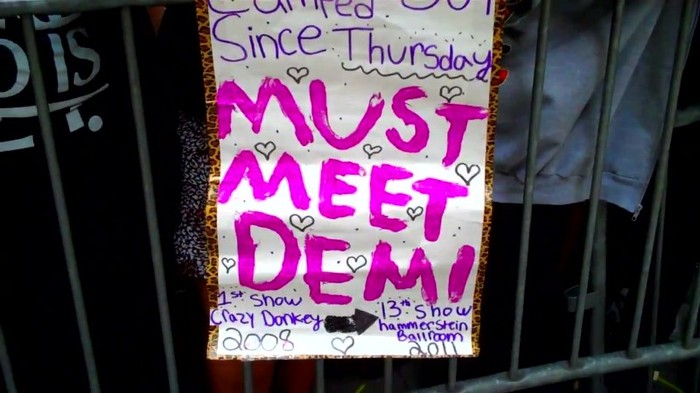 Camped Out
Since Thursday
MUST
MEET
DEMI
1st Show
Crazy Donkey
2008
13th Show
hammerstein
Ballroom
2011